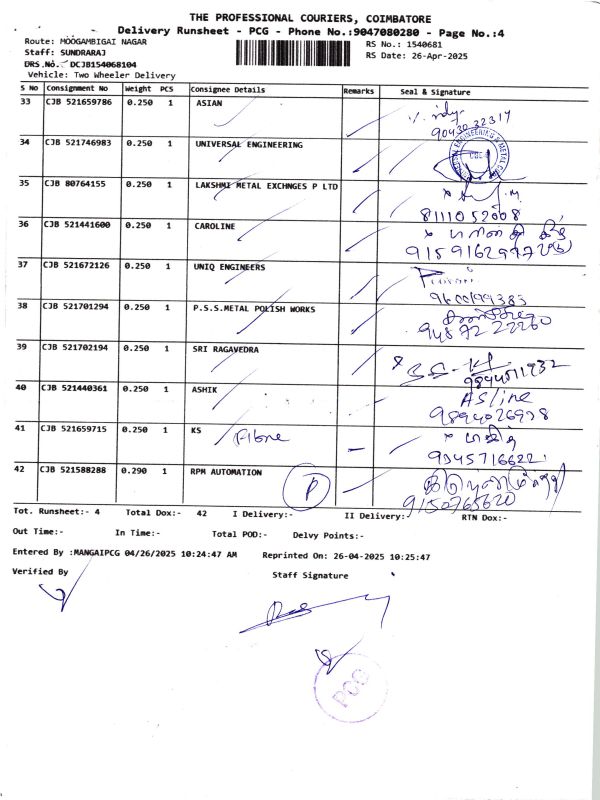 THE PROFESSIONAL COURIERS, COIMBATORE
Delivery Runsheet - PCG - Phone No.:9047080280 - Page No.:4
Route: MOOGAMBIGAI NAGAR
RS No.: 1540681
Staff: SUNDRARAJ
RS Date: 26-Apr-2025
DRS.No.: DCJB154068104
Vehicle: Two Wheeler Delivery
S No Consignment No Weight PCS Consignee Details Remarks Seal & Signature
33 CJB 521659786 0.250 1 ASIAN
9043032317
34 CJB 521746983 0.250 1 UNIVERSAL ENGINEERING
35 CJB 80764155 0.250 1 LAKSHMI METAL EXCHNGES P LTD
8111052008
36 CJB 521441600 0.250 1 CAROLINE
9159162977
37 CJB 521672126 0.250 1 UNIQ ENGINEERS
9600199385
38 CJB 521701294 0.250 1 P.S.S.METAL POLISH WORKS
9487222260
39 CJB 521702194 0.250 1 SRI RAGAVEDRA
9894511932
40 CJB 521440361 0.250 1 ASHIK
ASline
9894026978
41 CJB 521659715 0.250 1 KS Fibre
9345716622
42 CJB 521588288 0.290 1 RPM AUTOMATION P
9150765620
Tot. Runsheet:- 4 Total Dox:- 42 I Delivery:- II Delivery:- RTN Dox:-
Out Time:- In Time:- Total POD:- Delvy Points:-
Entered By :MANGAIPCG 04/26/2025 10:24:47 AM Reprinted On: 26-04-2025 10:25:47
Verified By Staff Signature
POD